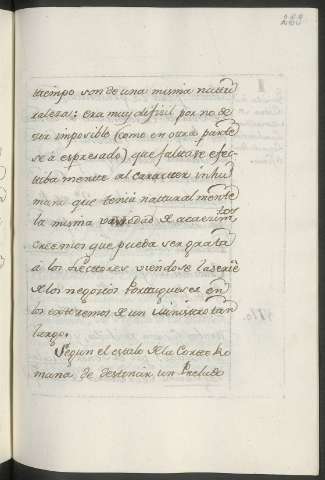 268
tiempo son de una misma natu
raleza: era muy dificil por no de
zir imposible (como en otra parte
se á espresado) que faltase efec
tibamente al caracter inhu
mano que tenia natural mente
la misma variedad de acaecim.tos
creemos que pueba ser grata
á los Lectores, siendose la serie
de los negocios Portugueses en
los extremos de un Ministro tan
largo.
Segun el estilo de la Corte Ro
mana, de destinar un Prelado